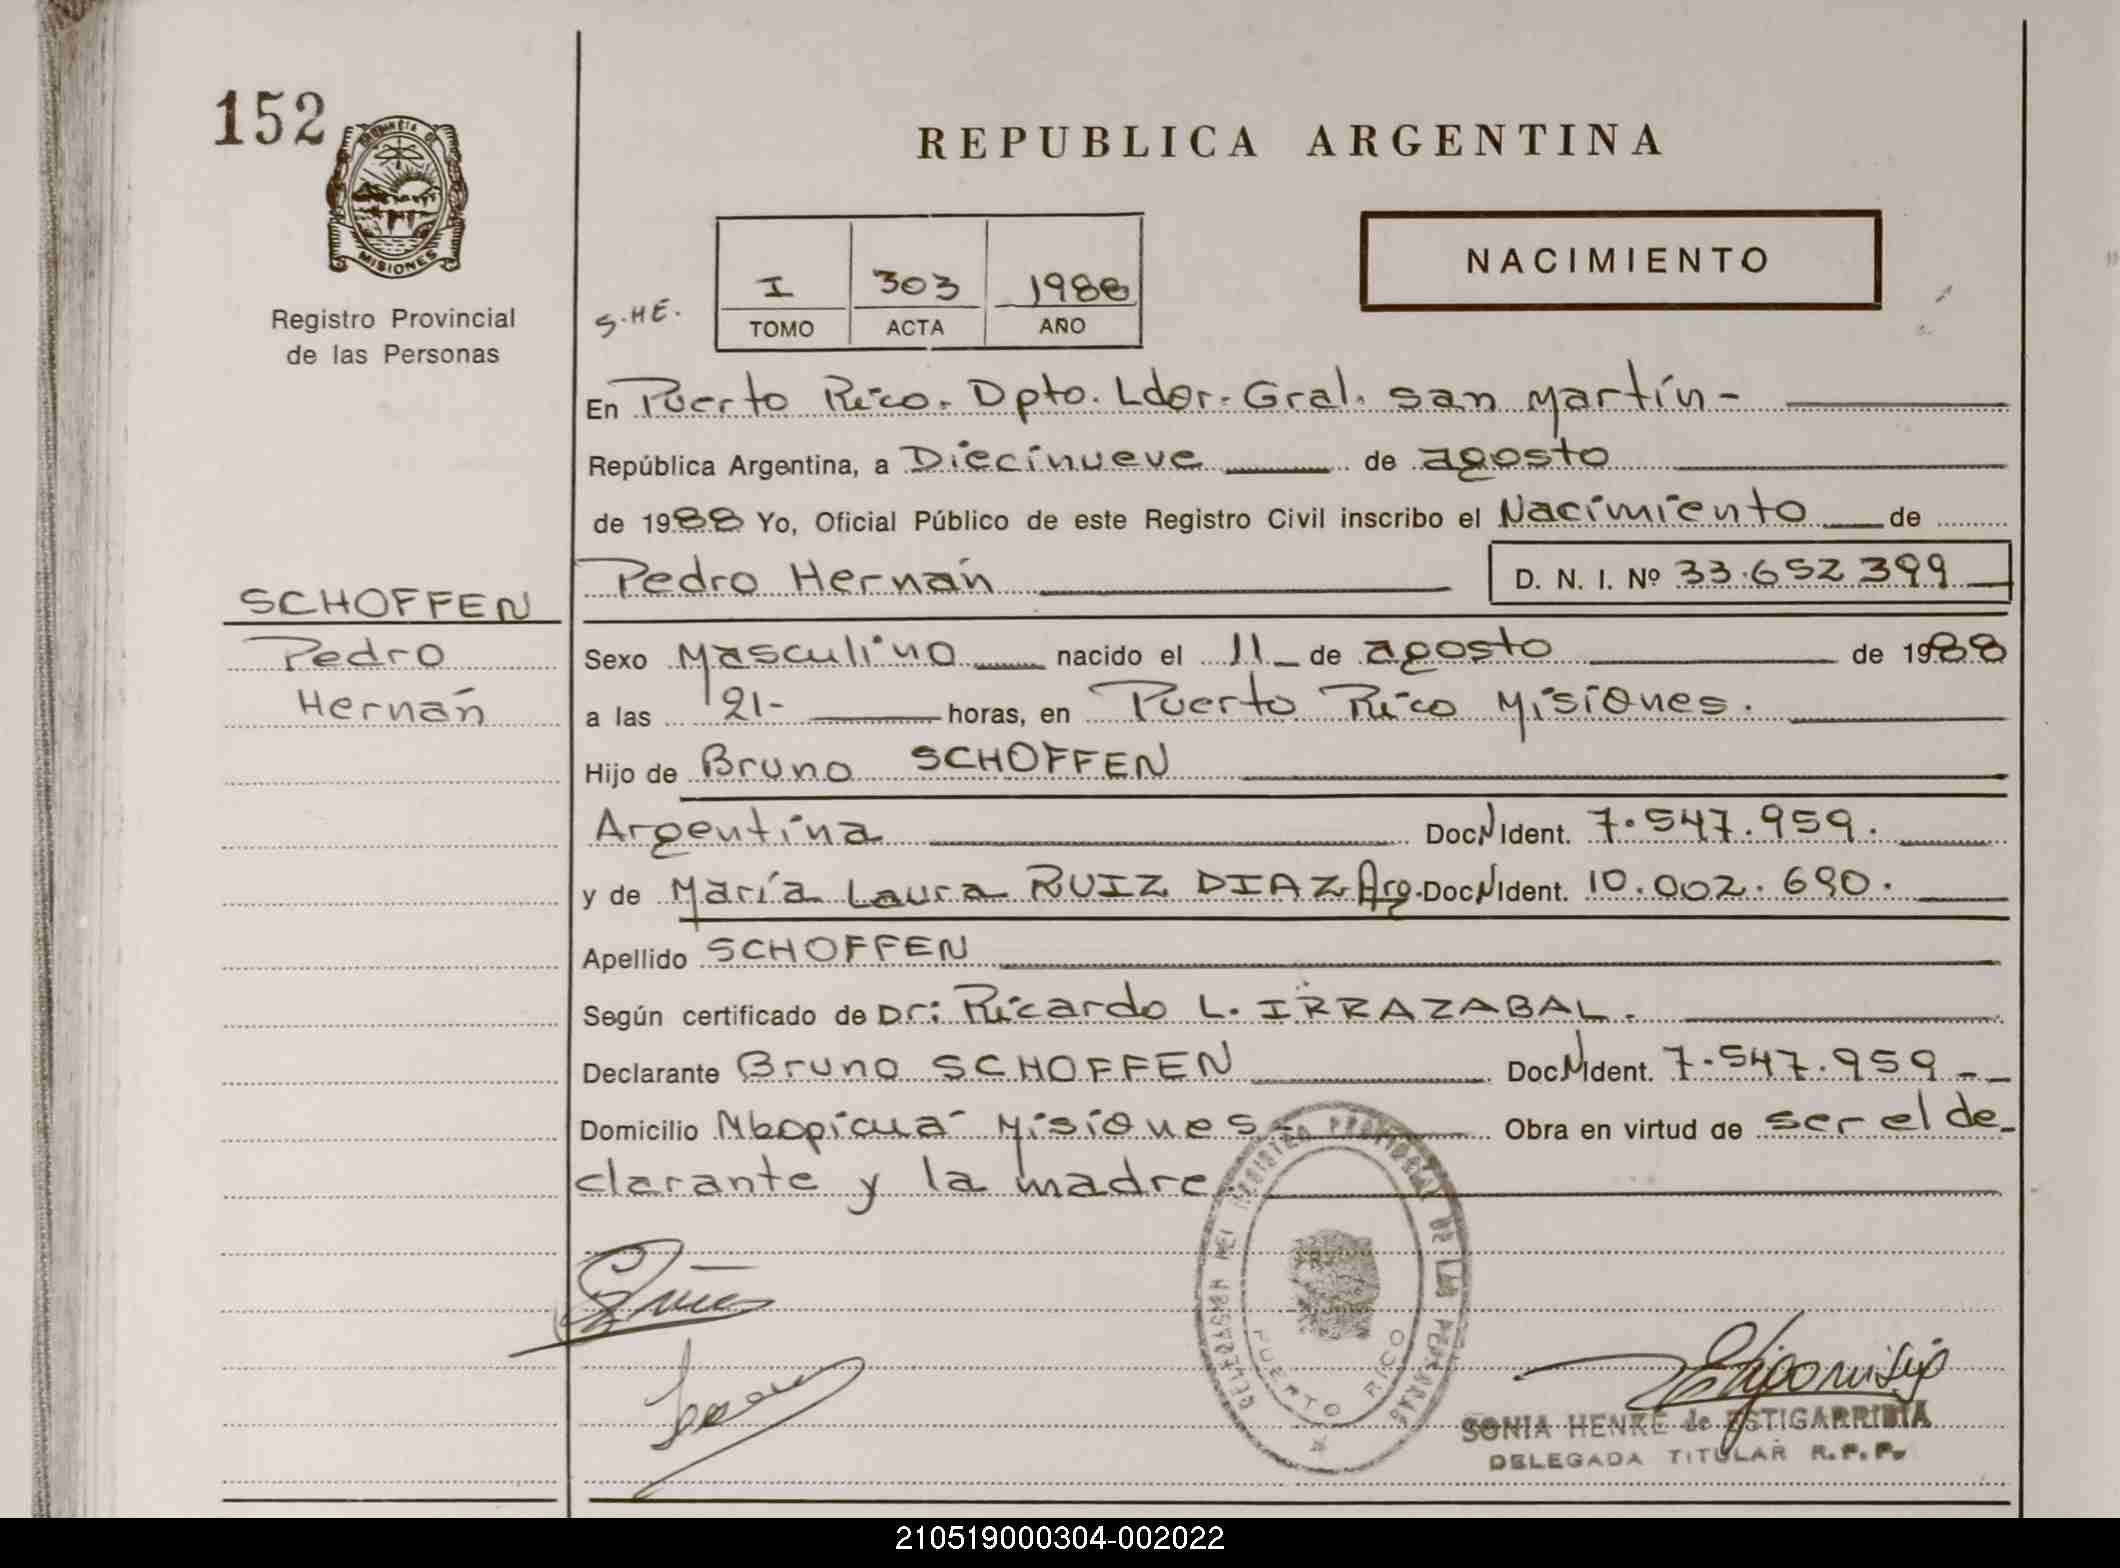 152
PROVINCIA DE
MISIONES
Registro Provincial
de las Personas
REPUBLICA ARGENTINA
NACIMIENTO
S.HE.
I 303 1988
TOMO ACTA AÑO
En Puerto Rico. Dpto. Ldor. Gral. San Martín-
República Argentina, a Diecinueve de agosto
de 1988 Yo, Oficial Público de este Registro Civil inscribo el Nacimiento de
Pedro Hernán D. N. I. Nº 33.652.399
SCHOFFEN
Pedro
Hernán
Sexo Masculino nacido el 11 de agosto de 1988
a las 21- horas, en Puerto Rico Misiones.
Hijo de Bruno SCHOFFEN
Argentina Doc. N Ident. 7.547.959.
y de María Laura RUIZ DIAZ Arg. Doc. N Ident. 10.002.690.
Apellido SCHOFFEN
Según certificado de Dr: Ricardo L. IRRAZABAL.
Declarante Bruno SCHOFFEN Doc. N Ident. 7.547.959--
Domicilio Mbopicuá Misiones- Obra en virtud de ser el de-
clarante y la madre.
DELEGACION DEL REGISTRO PROVINCIAL DE LAS PERSONAS
PUERTO RICO
SONIA HENKE de ESTIGARRIBIA
DELEGADA TITULAR R.P.P.
210519000304-002022